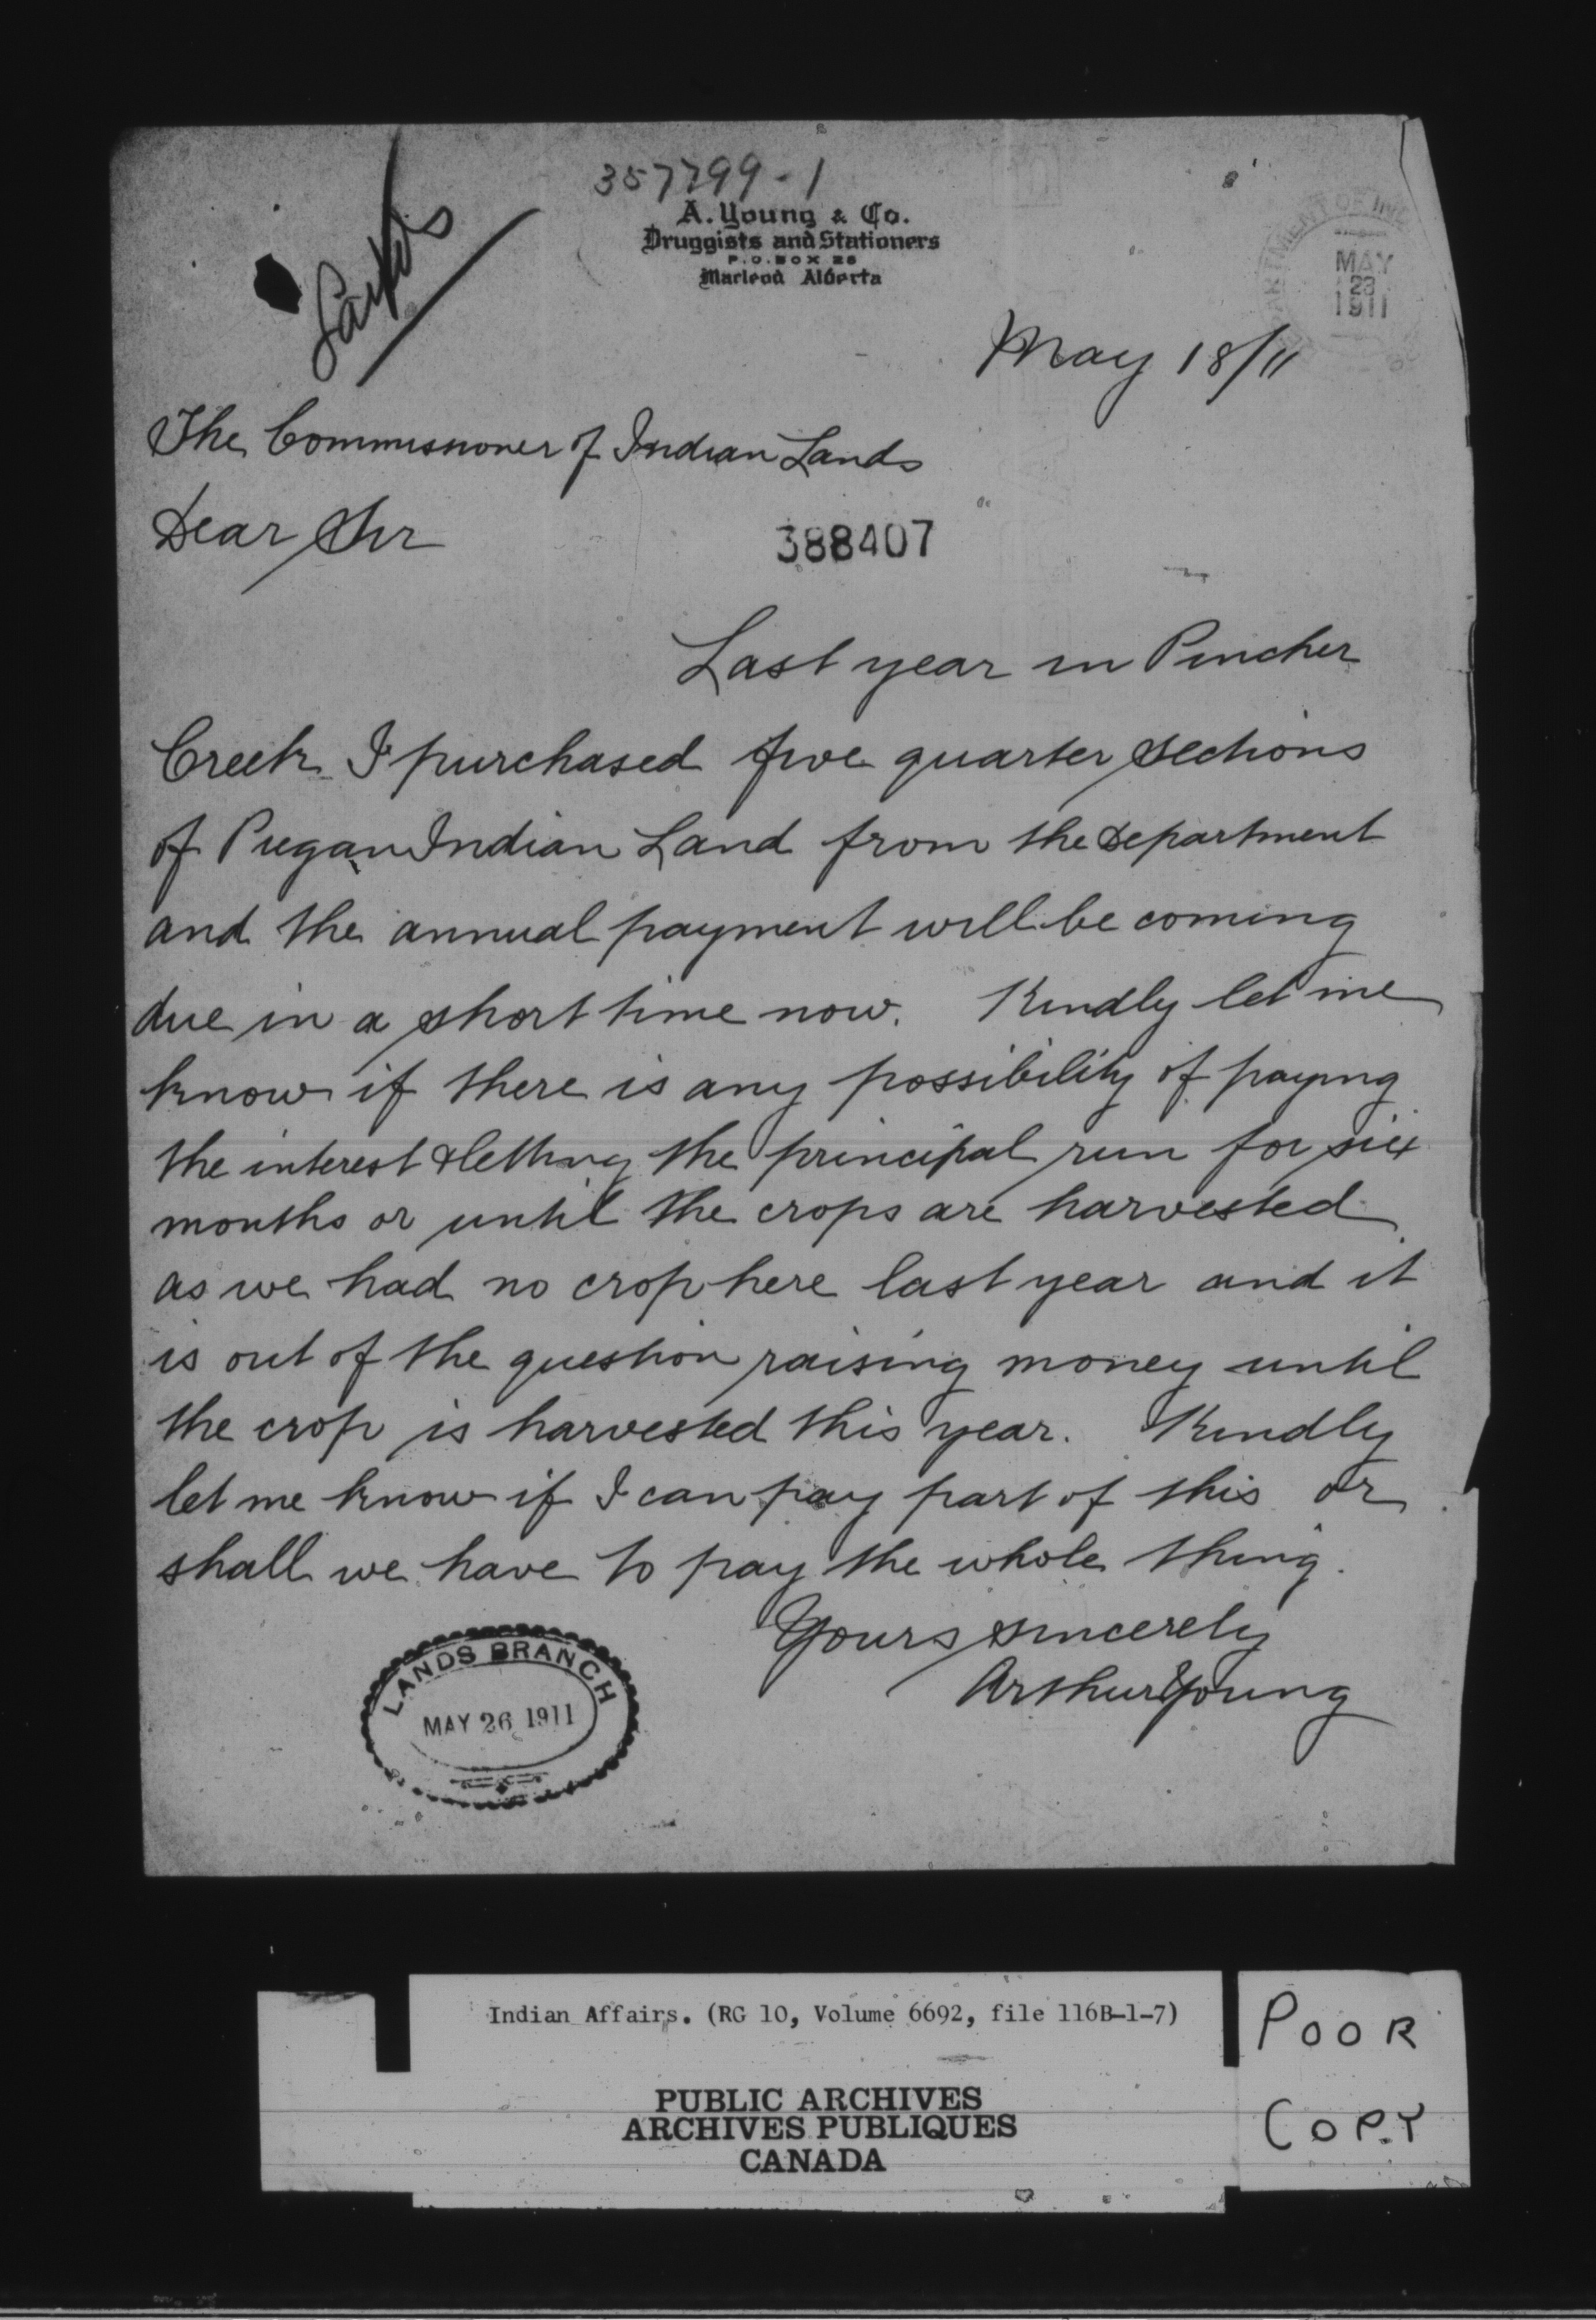 357799-1
A. Young & Co.
Druggists and Stationers
P.O. BOX 28
Macleod Alberta
MAY
23
1911
May 18/11
The Commissioner of Indian Lands
Dear Sir
388407
Last year in Pincher
Creek I purchased five quarter sections
of Piegan Indian Land from the Department
and the annual payment will be coming
due in a short time now. Kindly let me
know if there is any possibility of paying
the interest & letting the principal run for six
months or until the crops are harvested
as we had no crop here last year and it
is out of the question raising money until
the crop is harvested this year. Kindly
let me know if I can pay part of this or
shall we have to pay the whole thing.
Yours sincerely
Arthur Young
LANDS BRANCH
MAY 26 1911
Indian Affairs. (RG 10, Volume 6692, file 116B-1-7)
PUBLIC ARCHIVES
ARCHIVES PUBLIQUES
CANADA
POOR
COPY